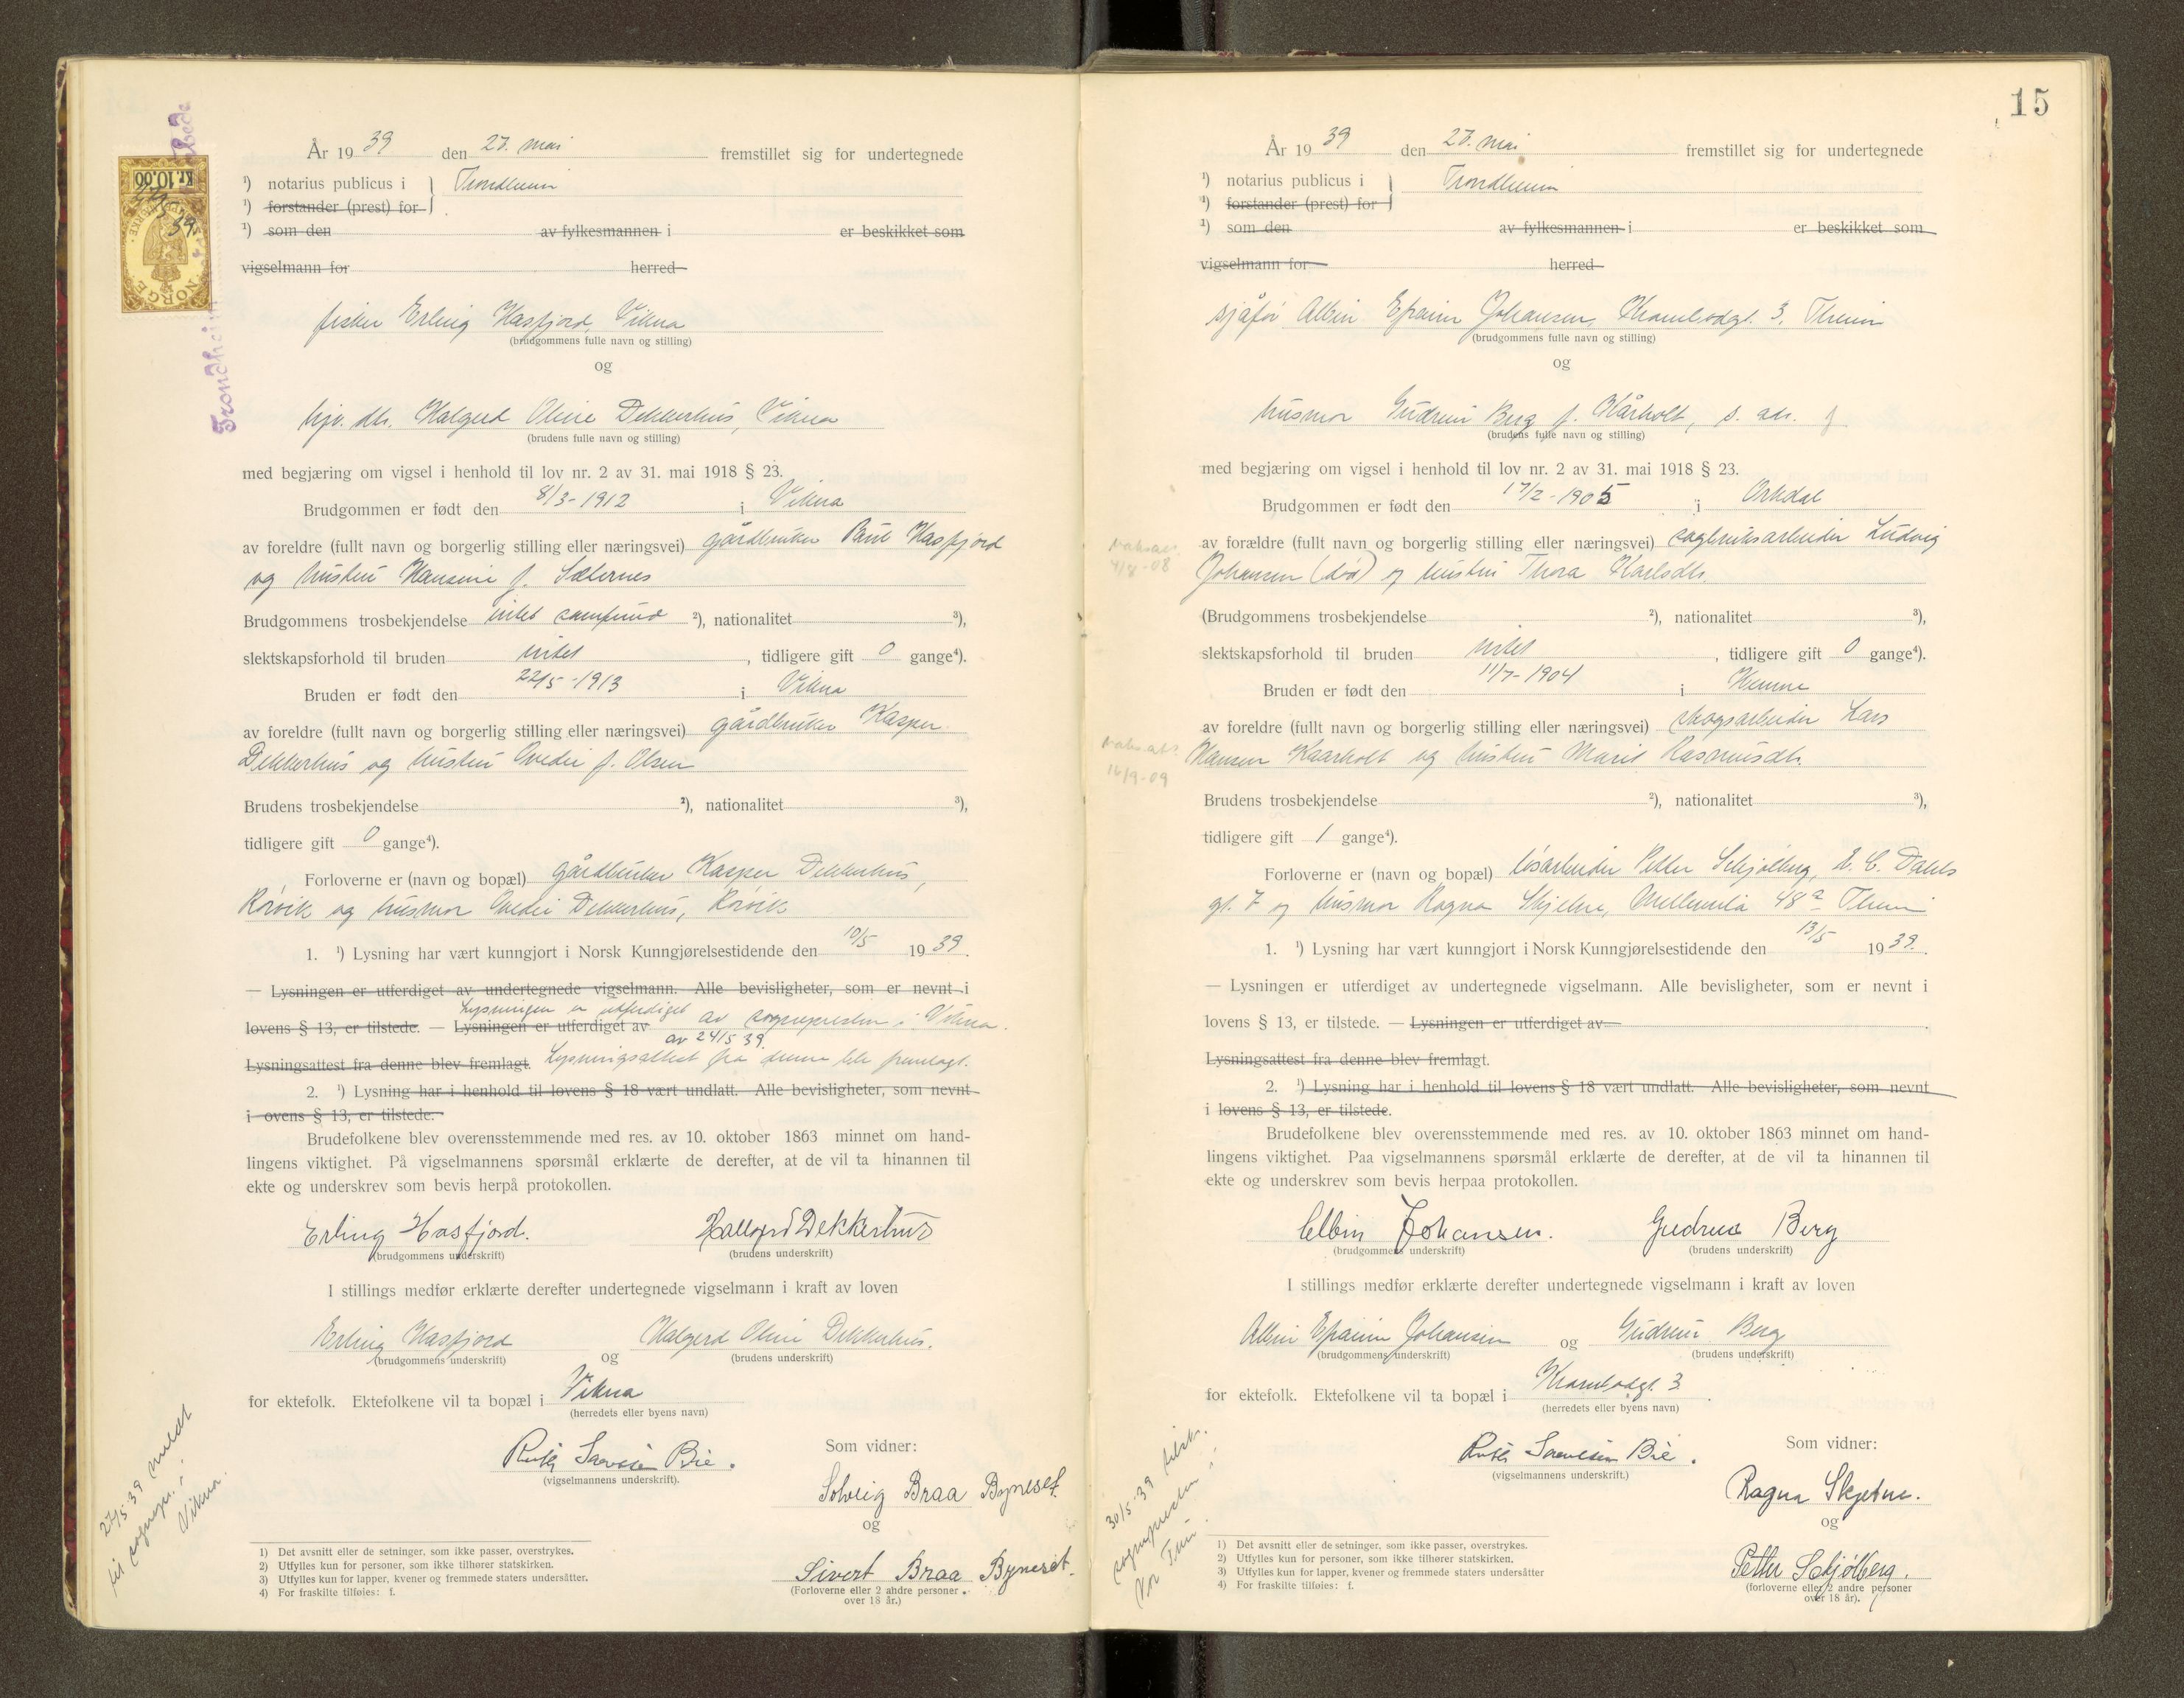 År 1939 den 27. mai fremstillet sig for undertegnede
¹) notarius publicus i } Trondheim
¹) forstander (prest) for
¹) som den av fylkesmannen i er beskikket som
vigselmann for herred
fisker Erling Hasfjord, Vikna
(brudgommens fulle navn og stilling)
og
hjv. dtr. Halgerd Oline Dekkerhus, Vikna
(brudens fulle navn og stilling)
med begjæring om vigsel i henhold til lov nr. 2 av 31. mai 1918 § 23.
Brudgommen er født den 8/3-1912 i Vikna
av foreldre (fullt navn og borgerlig stilling eller næringsvei) gårdbruker Paul Hasfjord
og hustru Hansine f. Sæternes
Brudgommens trosbekjendelse intet samfund ²), nationalitet ³),
slektskapsforhold til bruden intet, tidligere gift 0 gange⁴).
Bruden er født den 22/5-1913 i Vikna
av foreldre (fullt navn og borgerlig stilling eller næringsvei) gårdbruker Kasper
Dekkerhus og hustru Ovedie f. Olsen
Brudens trosbekjendelse ²), nationalitet ³),
tidligere gift 0 gange⁴).
Forloverne er (navn og bopæl) gårdbruker Kasper Dekkerhus,
Rørvik og husmor Ovedie Dekkerhus, Rørvik
1. ¹) Lysning har vært kunngjort i Norsk Kunngjørelsestidende den 10/5 1939.
— Lysningen er utferdiget av undertegnede vigselmann. Alle bevisligheter, som er nevnt i
Lysningen er utferdiget
lovens § 13, er tilstede. — Lysningen er utferdiget av av sognepresten i Vikna.
av 24/5 39.
Lysningsattest fra denne blev fremlagt. Lysningsattest fra denne ble fremlagt.
2. ¹) Lysning har i henhold til lovens § 18 vært undlatt. Alle bevisligheter, som nevnt
i ovens § 13, er tilstede.
Brudefolkene blev overensstemmende med res. av 10. oktober 1863 minnet om hand-
lingens viktighet. På vigselmannens spørsmål erklærte de derefter, at de vil ta hinannen til
ekte og underskrev som bevis herpå protokollen.
Erling Hasfjord. Hallgerd Dekkerhus
(brudgommens underskrift) (brudens underskrift)
I stillings medfør erklærte derefter undertegnede vigselmann i kraft av loven
Erling Hasfjord og Halgerd Oline Dekkerhus.
(brudgommens underskrift) (brudens underskrift)
for ektefolk. Ektefolkene vil ta bopæl i Vikna
(herredets eller byens navn)
Som vidner:
Ruth Sørensen Bie.
(vigselmannens underskrift).
Solveig Braa Byneset.
og
Sivert Braa Byneset.
(Forloverne eller 2 andre personer
over 18 år.)
27/5 39 meldt
til sognepr. i
Vikna.
1) Det avsnitt eller de setninger, som ikke passer, overstrykes.
2) Utfylles kun for personer, som ikke tilhører statskirken.
3) Utfylles kun for lapper, kvener og fremmede staters undersåtter.
4) For fraskilte tilføies: f.
Kr. 10.00
NORGE
27/5 39
Trondheim
15
År 1939 den 27. mai fremstillet sig for undertegnede
¹) notarius publicus i } Trondheim
¹) forstander (prest) for
¹) som den av fylkesmannen i er beskikket som
vigselmann for herred
sjåfør Albin Efraim Johansen, Krambodgt. 3, Theim
(brudgommens fulle navn og stilling)
og
husmor Gudrun Berg f. Kårholt, s. adr.
(brudens fulle navn og stilling)
med begjæring om vigsel i henhold til lov nr. 2 av 31. mai 1918 § 23.
Brudgommen er født den 17/2-1905 i Orkdal
av forældre (fullt navn og borgerlig stilling eller næringsvei) sagbruksarbeider Ludvig
Johansen (død) og hustru Thora Karlsdtr.
(Brudgommens trosbekjendelse ²), nationalitet ³),
slektskapsforhold til bruden intet, tidligere gift 0 gange⁴).
Bruden er født den 11/7-1904 i Hemne
av foreldre (fullt navn og borgerlig stilling eller næringsvei) skogsarbeider Lars
Hansen Kaarholt og hustru Marit Rasmusdtr.
Brudens trosbekjendelse ²), nationalitet ³),
tidligere gift 1 gange⁴).
Forloverne er (navn og bopæl) løsarbeider Petter Schjølberg, E. C. Dahls
gt. 7 og husmor Ragna Skjetne, Mellemila 48ᵃ Theim
1. ¹) Lysning har vært kunngjort i Norsk Kunngjørelsestidende den 13/5 1939.
— Lysningen er utferdiget av undertegnede vigselmann. Alle bevisligheter, som er nevnt i
lovens § 13, er tilstede. — Lysningen er utferdiget av
Lysningsattest fra denne blev fremlagt.
2. ¹) Lysning har i henhold til lovens § 18 vært undlatt. Alle bevisligheter, som nevnt
i lovens § 13, er tilstede.
Brudefolkene blev overensstemmende med res. av 10. oktober 1863 minnet om hand-
lingens viktighet. Paa vigselmannens spørsmål erklærte de derefter, at de vil ta hinannen til
ekte og underskrev som bevis herpaa protokollen.
Albin Johansen. Gudrun Berg
(brudgommens underskrift) (brudens underskrift)
I stillings medfør erklærte derefter undertegnede vigselmann i kraft av loven
Albin Efraim Johansen og Gudrun Berg
(brudgommens underskrift) (brudens underskrift)
for ektefolk. Ektefolkene vil ta bopæl i Krambodgt. 3.
(herredets eller byens navn)
Som vidner:
Ruth Sørensen Bie.
(vigselmannens underskrift.)
Ragna Skjetne.
og
Petter Schjølberg.
(forloverne eller 2 andre personer
over 18 år).
30/5-39
sognepresten i
Vor
1) Det avsnitt eller de setninger, som ikke passer, overstrykes.
2) Utfylles kun for personer, som ikke tilhører statskirken.
3) Utfylles kun for lapper, kvener og fremmede staters undersåtter
4) For fraskilte tilføies: f.